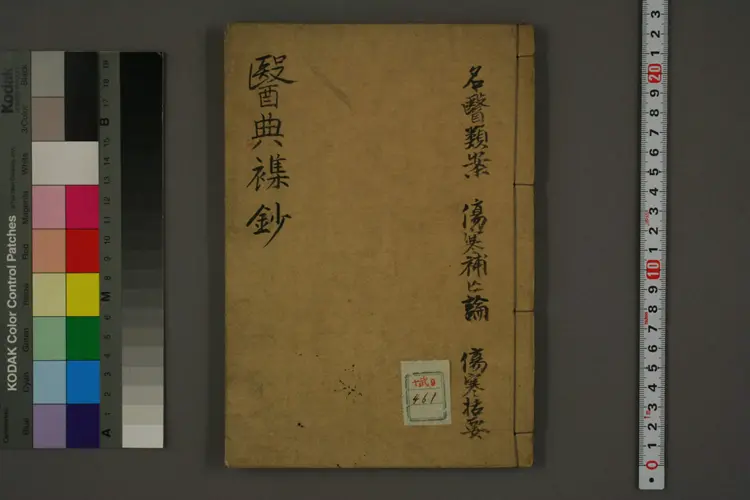 醫典襍鈔
名醫類案 傷寒補亡論 傷寒括要
461
KODAK Color Control Patches
Kodak
Blue
Cyan
Green
Yellow
Red
Magenta
White
3/Color
Black
A 1 2 3 4 5 6 M 8 9 10 11 12 13 14 15 B 17 18 19
0 1 2 3 4 5 6 7 8 9 10 1 2 3 4 5 6 7 8 9 20 1 2 3